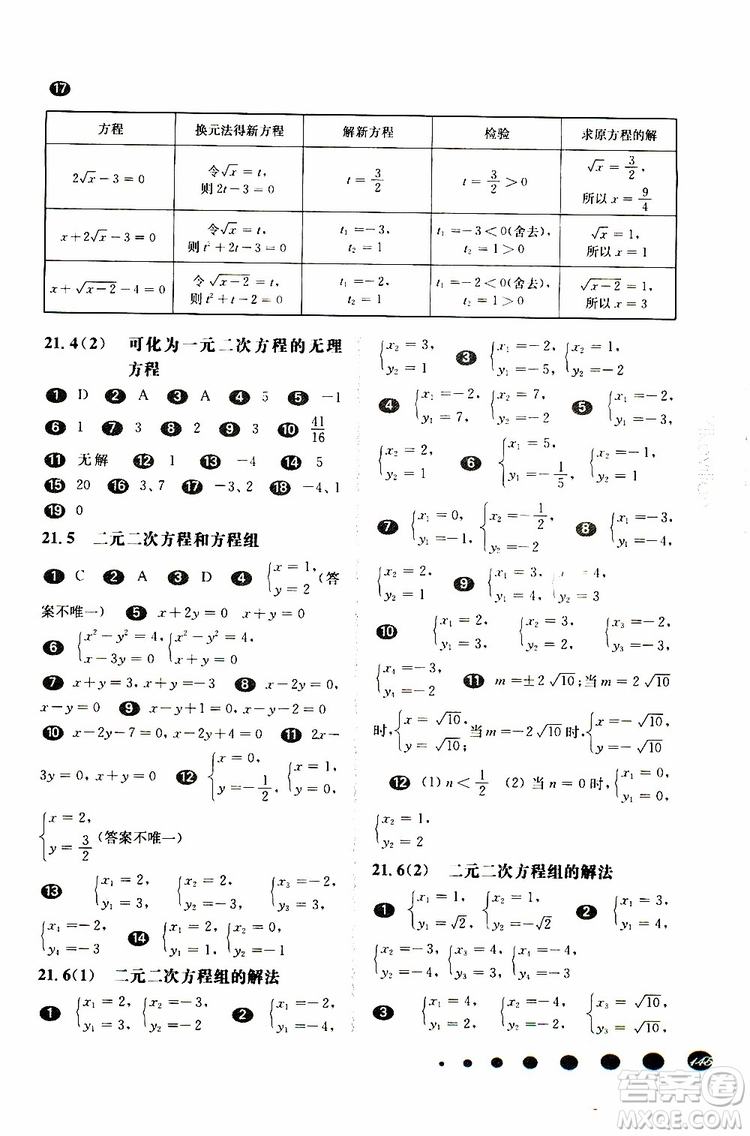 17
方程 换元法得新方程 解新方程 检验 求原方程的解
2√x－3＝0 令√x＝t, 则 2t－3＝0 t＝3/2 t＝3/2＞0 √x＝3/2, 所以 x＝9/4
x＋2√x－3＝0 令√x＝t, 则 t²＋2t－3＝0 t₁＝－3, t₂＝1 t₁＝－3＜0(舍去), t₂＝1 √x＝1, 所以 x＝1
x＋√x－2－4＝0 令√x－2＝t, 则 t²＋t－2＝0 t₁＝－2, t₂＝1 t₁＝－2＜0(舍去), t₂＝1 √x－2＝1, 所以 x＝3
21.4(2) 可化为一元二次方程的无理
方程
1 D 2 A 3 A 4 5 5 －1
6 1 7 3 8 2 9 3 10 41/16
11 无解 12 1 13 －4 14 5
15 20 16 3、7 17 －3、2 18 －4、1
19 0
21.5 二元二次方程和方程组
1 C 2 A 3 D 4 {x＝1, y＝2 (答
案不唯一) 5 x＋2y＝0 x＋y＝0
6 {x²－y²＝4, x－3y＝0 {x²－y²＝4, x＋y＝0
7 x＋y＝3, x＋y＝－3 8 x－2y＝0,
x－y＝0 9 x－y＋1＝0, x－y－1＝0
10 x－2y－7＝0, x－2y＋4＝0 11 2x－
3y＝0, x＋y＝0 12 {x＝0, y＝－1/2, {x＝1, y＝0,
{x＝2, y＝3/2 (答案不唯一)
13 {x₁＝2, y₁＝3, {x₂＝3, y₂＝2, {x₃＝－2, y₃＝－3,
{x₄＝－3, y₄＝－2 14 {x₁＝4, y₁＝2, {x₂＝－2, y₂＝－4
21.6(1) 二元二次方程组的解法
1 {x₁＝2, y₁＝3, {x₂＝－3, y₂＝－2 2 {x₁＝2, y₁＝－4,
{x₂＝3, y₂＝－1 3 {x₁＝－2, y₁＝－5, {x₂＝1, y₂＝－2
4 {x₁＝－2, y₁＝7, {x₂＝7, y₂＝－2 5 {x₁＝－2, y₁＝1,
{x₂＝2, y₂＝1 6 {x₁＝5, y₁＝－1/5, {x₂＝－1, y₂＝1
7 {x₁＝0, y₁＝－1, {x₂＝－1/2, y₂＝0 8 {x₁＝1, y₁＝－3,
{x₂＝3, y₂＝－1 9 {x₁＝3, y₁＝4, {x₂＝4, y₂＝3
10 {x₁＝2, y₁＝3, {x₂＝3, y₂＝2, {x₃＝－2, y₃＝－3,
{x₄＝－3, y₄＝－2 11 m＝±2√10; 当 m＝2√10
时, {x＝√10, y＝√10; 当 m＝－2√10 时, {x＝－√10, y＝－√10
12 (1) n＜1/2 (2) 当 n＝0 时, {x₁＝0, y₁＝0,
{x₂＝1, y₂＝2
21.6(2) 二元二次方程组的解法
1 {x₁＝1, y₁＝√2, {x₂＝1, y₂＝－√2 2 {x₁＝3, y₁＝4,
{x₂＝－3, y₂＝－4, {x₃＝4, y₃＝3, {x₄＝－4, y₄＝－3
3 {x₁＝4, y₁＝2, {x₂＝－4, y₂＝－2, {x₃＝√10, y₃＝√10,
145
答案圈
MXQE.COM